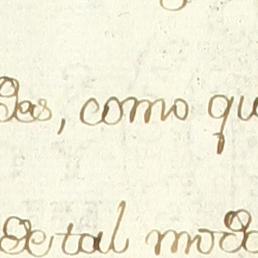 des, como qu
de tal modo